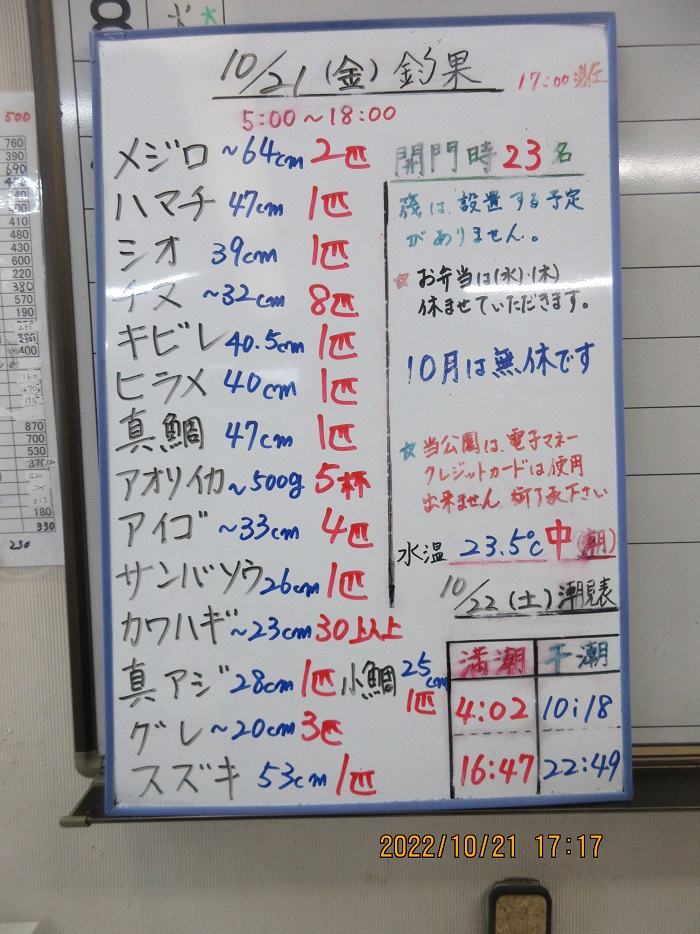 10/21(金)釣果
17:00現在
5:00〜18:00
メジロ 〜64cm 2匹
ハマチ 47cm 1匹
シオ 39cm 1匹
チヌ 〜32cm 8匹
キビレ 40.5cm 1匹
ヒラメ 40cm 1匹
真鯛 47cm 1匹
アオリイカ 〜500g 5杯
アイゴ 〜33cm 4匹
サンバソウ 26cm 1匹
カワハギ 〜23cm 30以上
真アジ 28cm 1匹 小鯛 25cm 1匹
グレ 〜20cm 3匹
スズキ 53cm 1匹
開門時 23名
筏は、設置する予定
がありません。
☆お弁当は(水)・(木)
休ませていただきます。
10月は無休です
☆当公園は、電子マネー
クレジットカードは使用
出来ません。御了承下さい
水温 23.5℃ 中(潮)
10/22(土)潮見表
満潮 干潮
4:02 10:18
16:47 22:49
2022/10/21 17:17
500
760
390
690
480
430
600
220
380
570
190
400
870
700
530
180
330
230